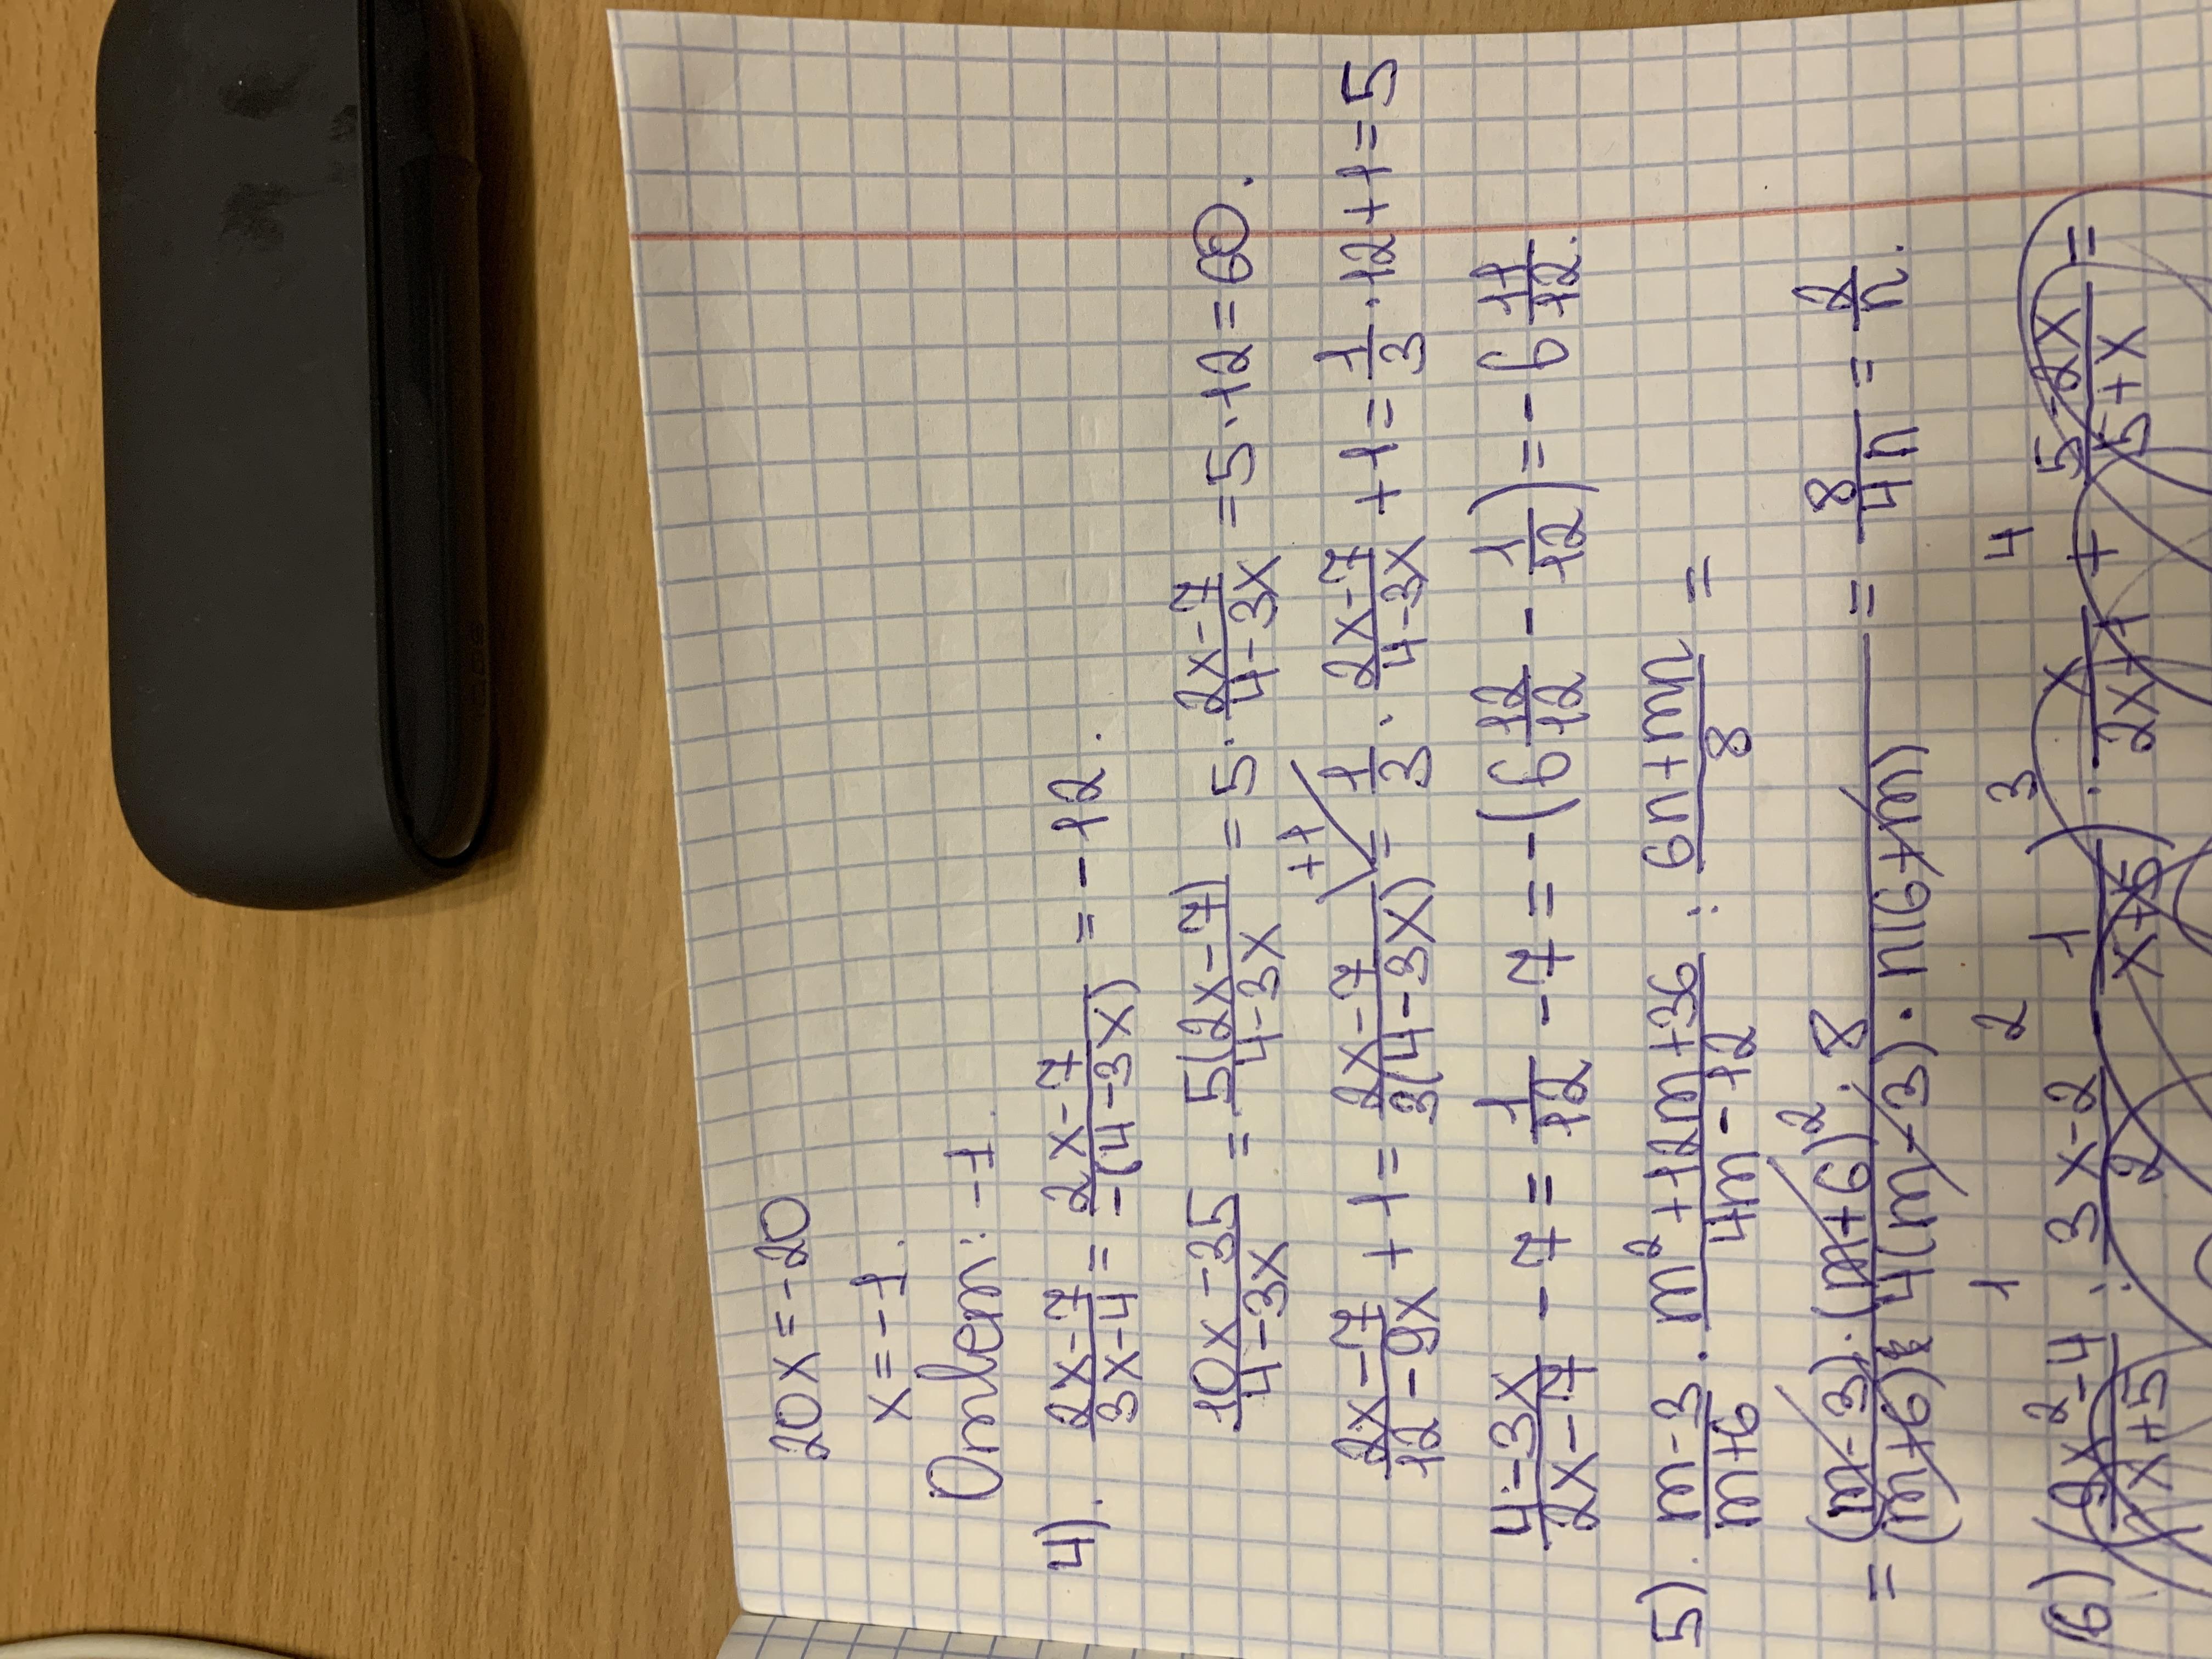 20x = -20
x = -1.
Ответ: -1.
4). \frac{2x-7}{3x-4} = \frac{2x-7}{-(4-3x)} = -12.
\frac{10x-35}{4-3x} = \frac{5(2x-7)}{4-3x} = 5 · \frac{2x-7}{4-3x} = 5·12 = 60.
+1
\frac{2x-7}{12-9x} + 1 = \frac{2x-7}{3(4-3x)} = \frac{1}{3} · \frac{2x-7}{4-3x} + 1 = \frac{1}{3} · 12 + 1 = 5
\frac{4-3x}{2x-7} - 7 = \frac{1}{12} - 7 = -(6\frac{12}{12} - \frac{1}{12}) = -6\frac{11}{12}.
5). \frac{m-3}{m+6} · \frac{m^2+12m+36}{4m-12} : \frac{6n+mn}{8} =
= \frac{(m-3)·(m+6)^2·8}{(m+6)·4(m-3)·n(6+m)} = \frac{8}{4n} = \frac{2}{n}.
1 2 3 4
6) (\frac{2x^2-4}{x+5} : \frac{3x-2}{2} - \frac{1}{x+5}) · \frac{x}{2x+1} + \frac{5-2x}{5+x} =